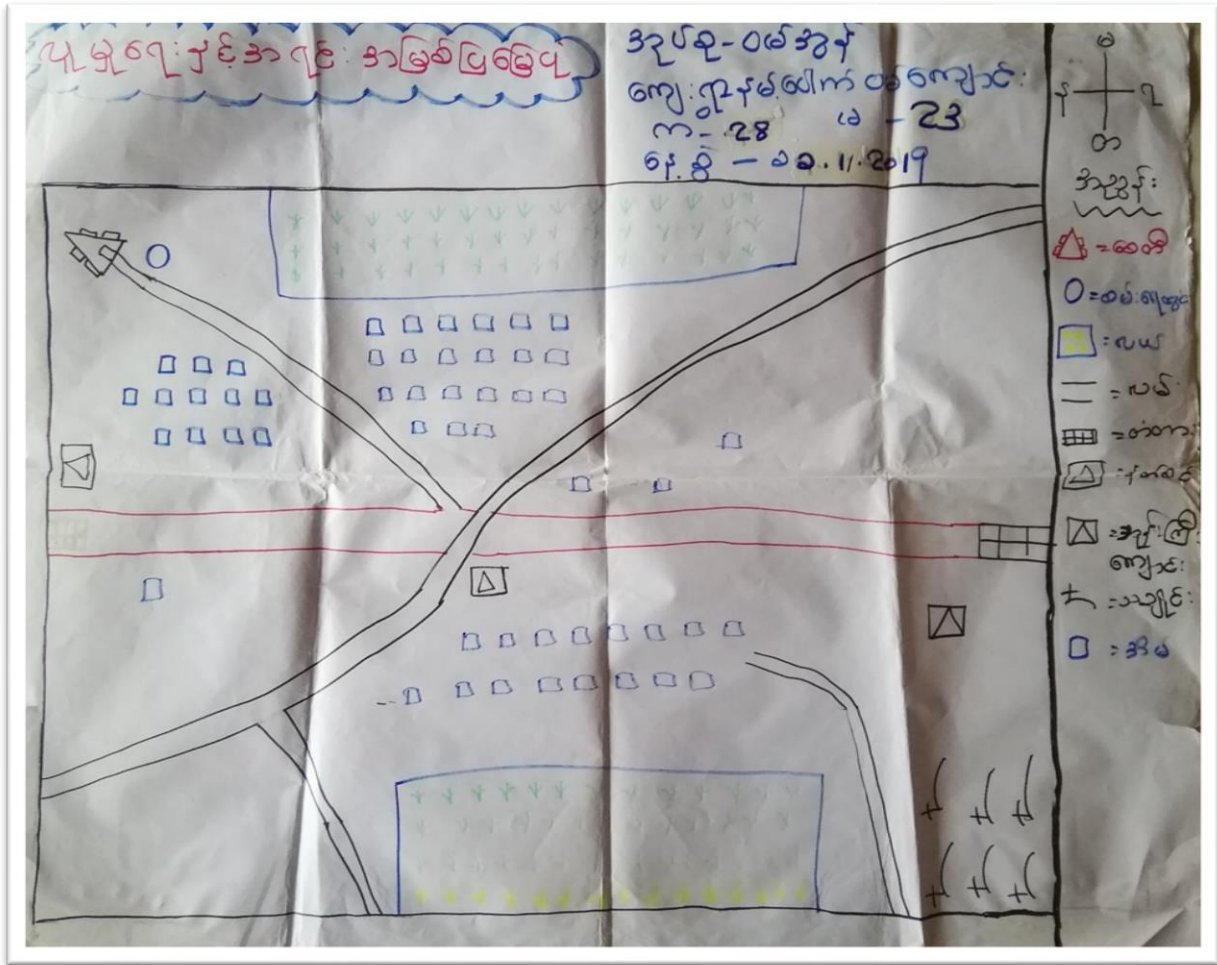 လူမှုရေးနှင့်အရင်းအမြစ်ပြမြေပုံ
အုပ်စု - ဝမ်အွန်
ကျေးရွာ နမ့်ပေါက်
က - 28 မ - 23
နေ့စွဲ - ၁၁.11.2019
မ
န
တ
အညွှန်း
= စေတီ
= လယ်
= လမ်း
= တံတား
= ဘုန်းကြီး
ကျောင်း
= သင်္ချိုင်း
= အိမ်